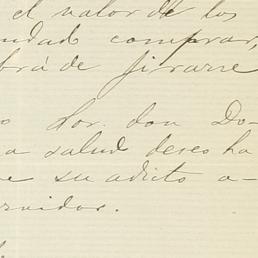 el valor de los
comprar,
brá de jirarse
Hor. don Do-
a salud deseo ha
e su adicto a-
rvidor.